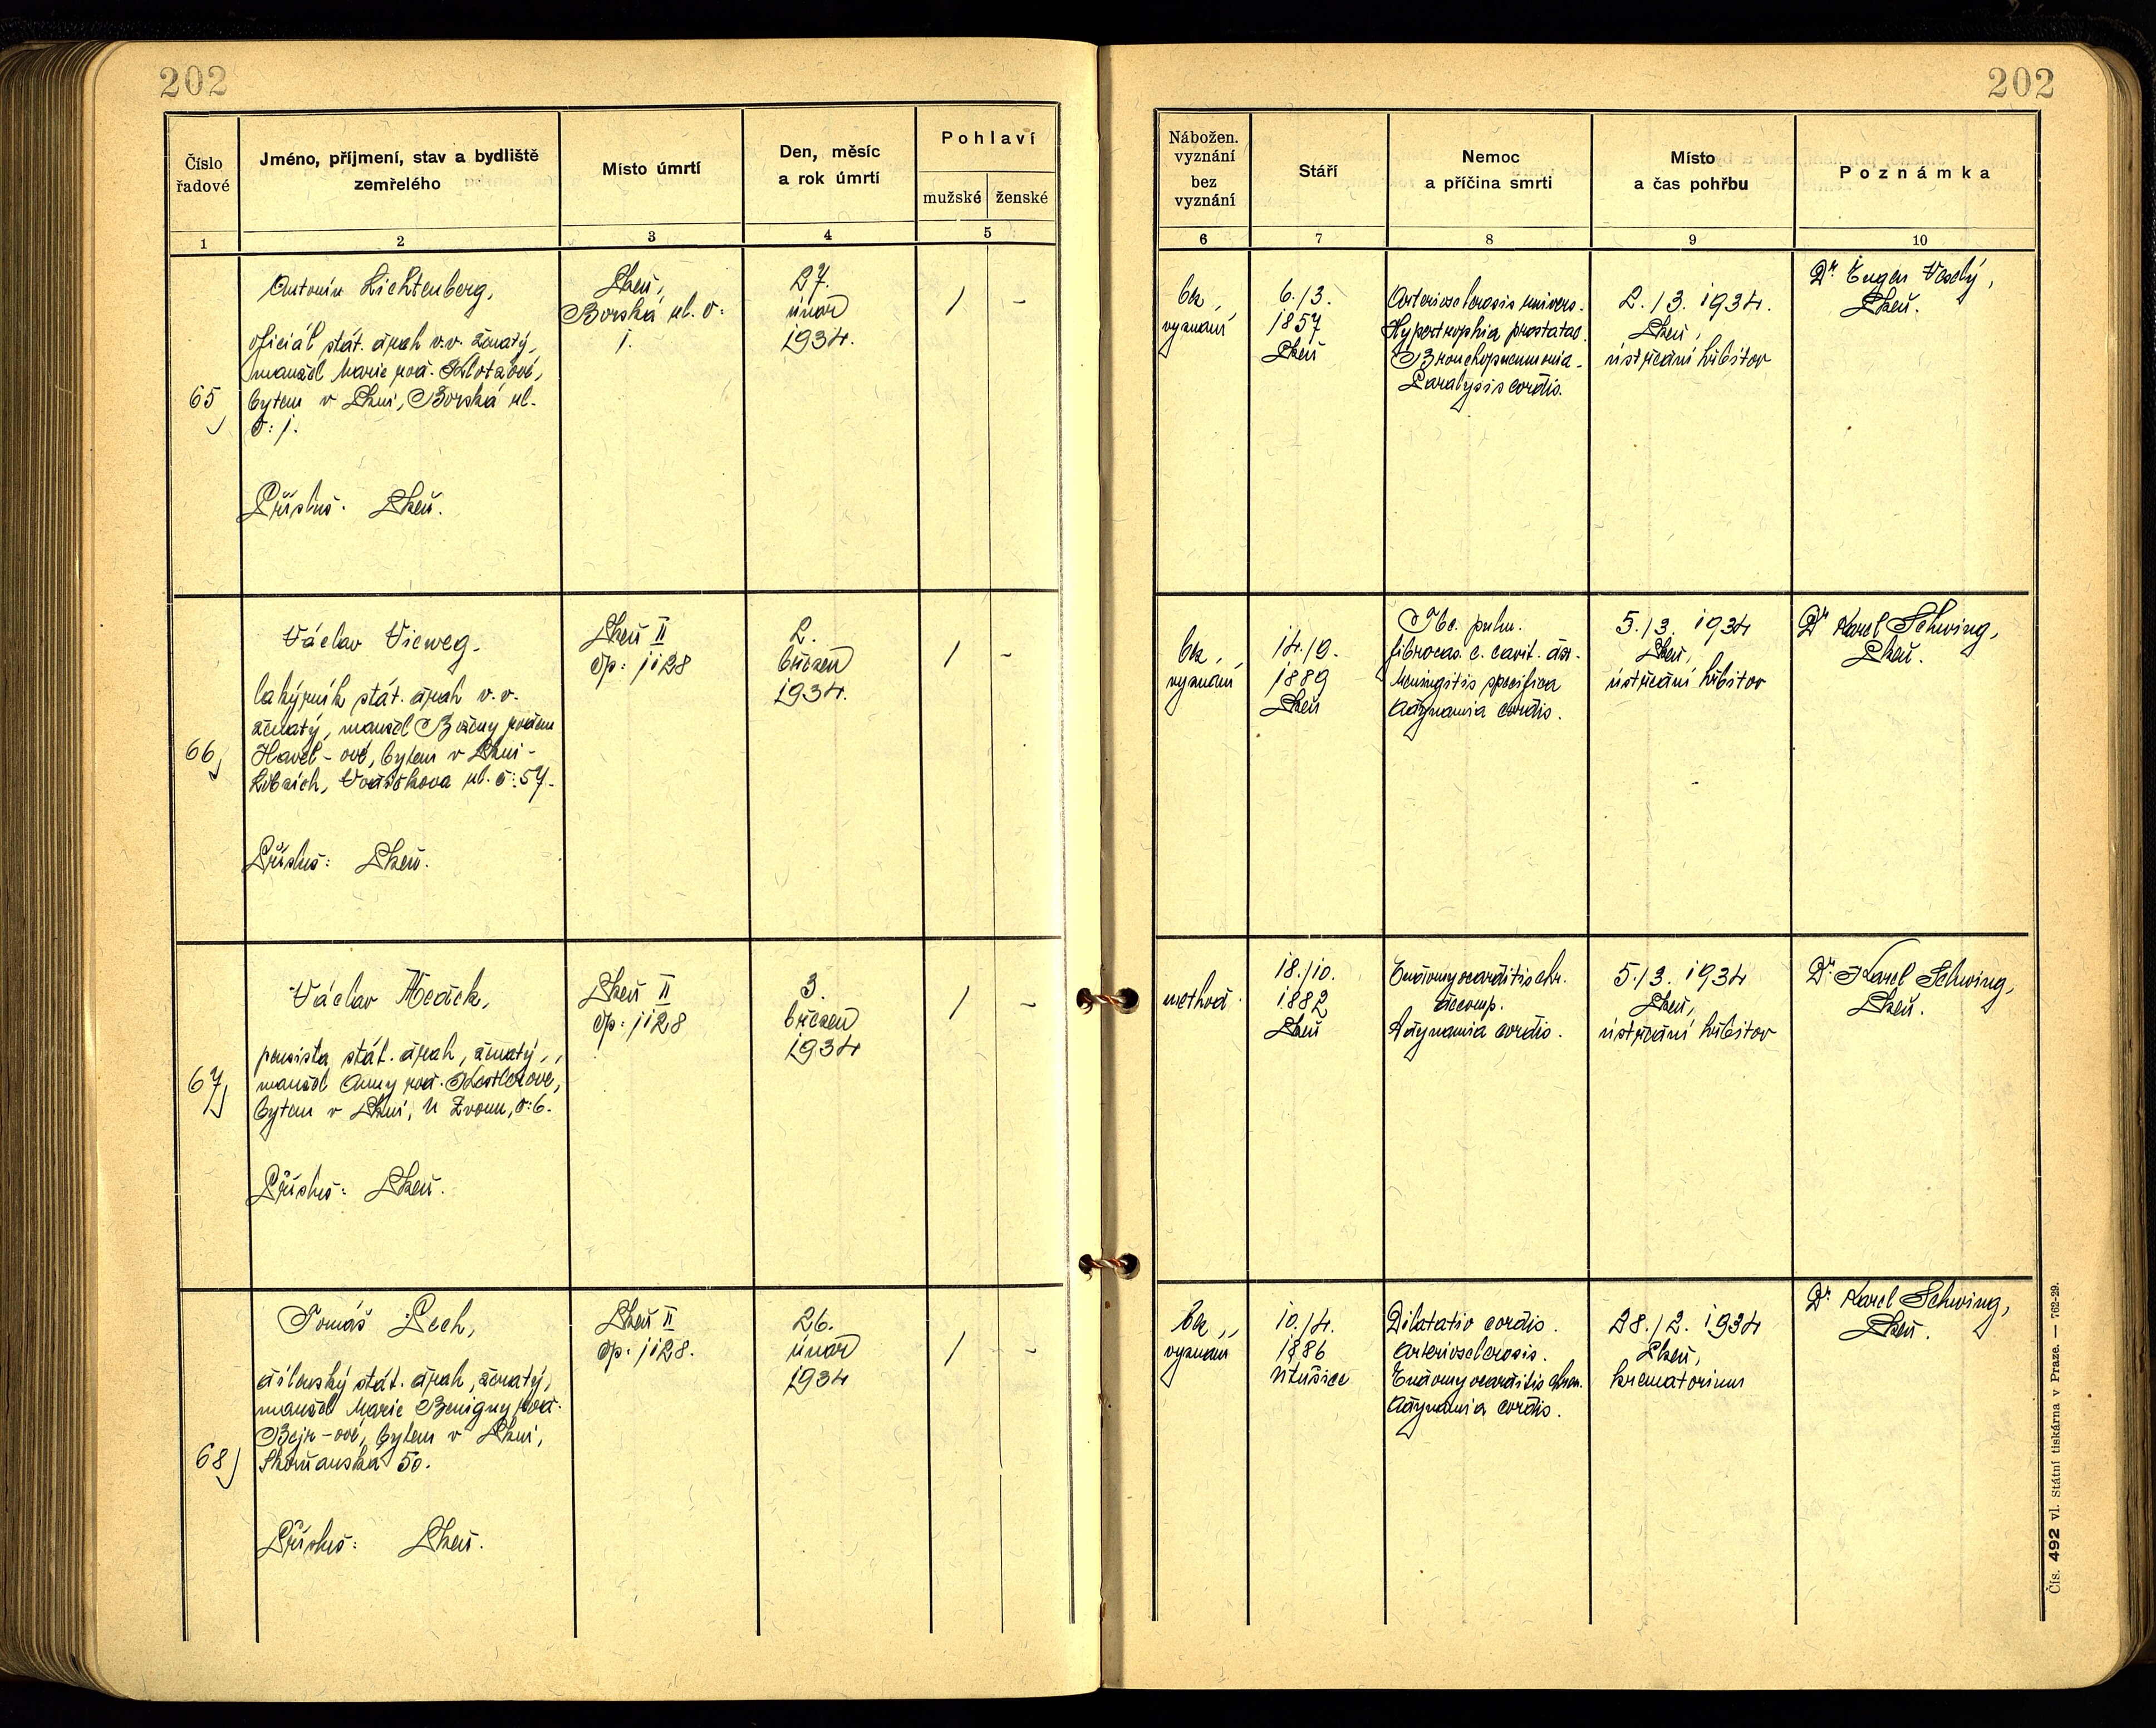 202
202
Číslo
řadové
Jméno, příjmení, stav a bydliště
zemřelého
Místo úmrtí
Den, měsíc
a rok úmrtí
Pohlaví
mužské
ženské
1
2
3
4
5
Nábožen.
vyznání
bez
vyznání
Stáří
Nemoc
a příčina smrti
Místo
a čas pohřbu
Poznámka
6
7
8
9
10
65
Antonín Lichtenberg,
oficiál stát. drah v.v. ženatý,
manžel Marie roz.
bytem v Plzni, Borská ul.
č: 1.
Přísluš. Plzeň.
Plzeň,
Borská ul. č:
1.
27.
únor
1934.
1
-
bez
vyznání
6./3.
1857
Plzeň
Arteriosclerosis univers.
Hypertrophia prostatae.
Bronchopneumonia.
Paralysis cordis.
2./3. 1934.
Plzeň,
ústřední hřbitov
Dr. Eugen Veselý,
Plzeň.
66
Václav Vieweg.
lakýrník stát. drah v.v.
ženatý, manžel Boženy rozen
Havel-ové, bytem v Plzni-
Lobzích, ul. č: 57.
Přísluš: Plzeň.
Plzeň II
čp: 1128
2.
březen
1934.
1
-
bez
vyznání
14./9.
1889
Plzeň
Tbc. pulm.
fibrocas. c. cavit.
Meningitis specifica
Adynamia cordis.
5./3. 1934
Plzeň,
ústřední hřbitov
Dr Karel Schwing,
Plzeň.
67
Václav
pensista stát. drah, ženatý,
manžel Anny roz.
bytem v Plzni, U Zvonu, č: 6.
Přísluš: Plzeň.
Plzeň II
čp: 1128
3.
březen
1934
1
-
18./10.
1882
Plzeň
Endomyocarditis chr.
decomp.
Adynamia cordis.
5./3. 1934
Plzeň,
ústřední hřbitov
Dr. Karel Schwing,
Plzeň.
68
Tomáš Pech,
dílenský stát. drah, ženatý,
manžel Marie Benigny roz.
Bejr-ové, bytem v Plzni,
50.
Přísluš: Plzeň.
Plzeň II
čp: 1128.
26.
únor
1934
1
-
bez
vyznání
10./4.
1886
Útušice
Dilatatio cordis.
Arteriosclerosis.
Endomyocarditis chron.
Adynamia cordis.
28./2. 1934
Plzeň,
krematorium
Dr. Karel Schwing,
Plzeň.
Čís. 492 vl. Státní tiskárna v Praze. — 762-29.